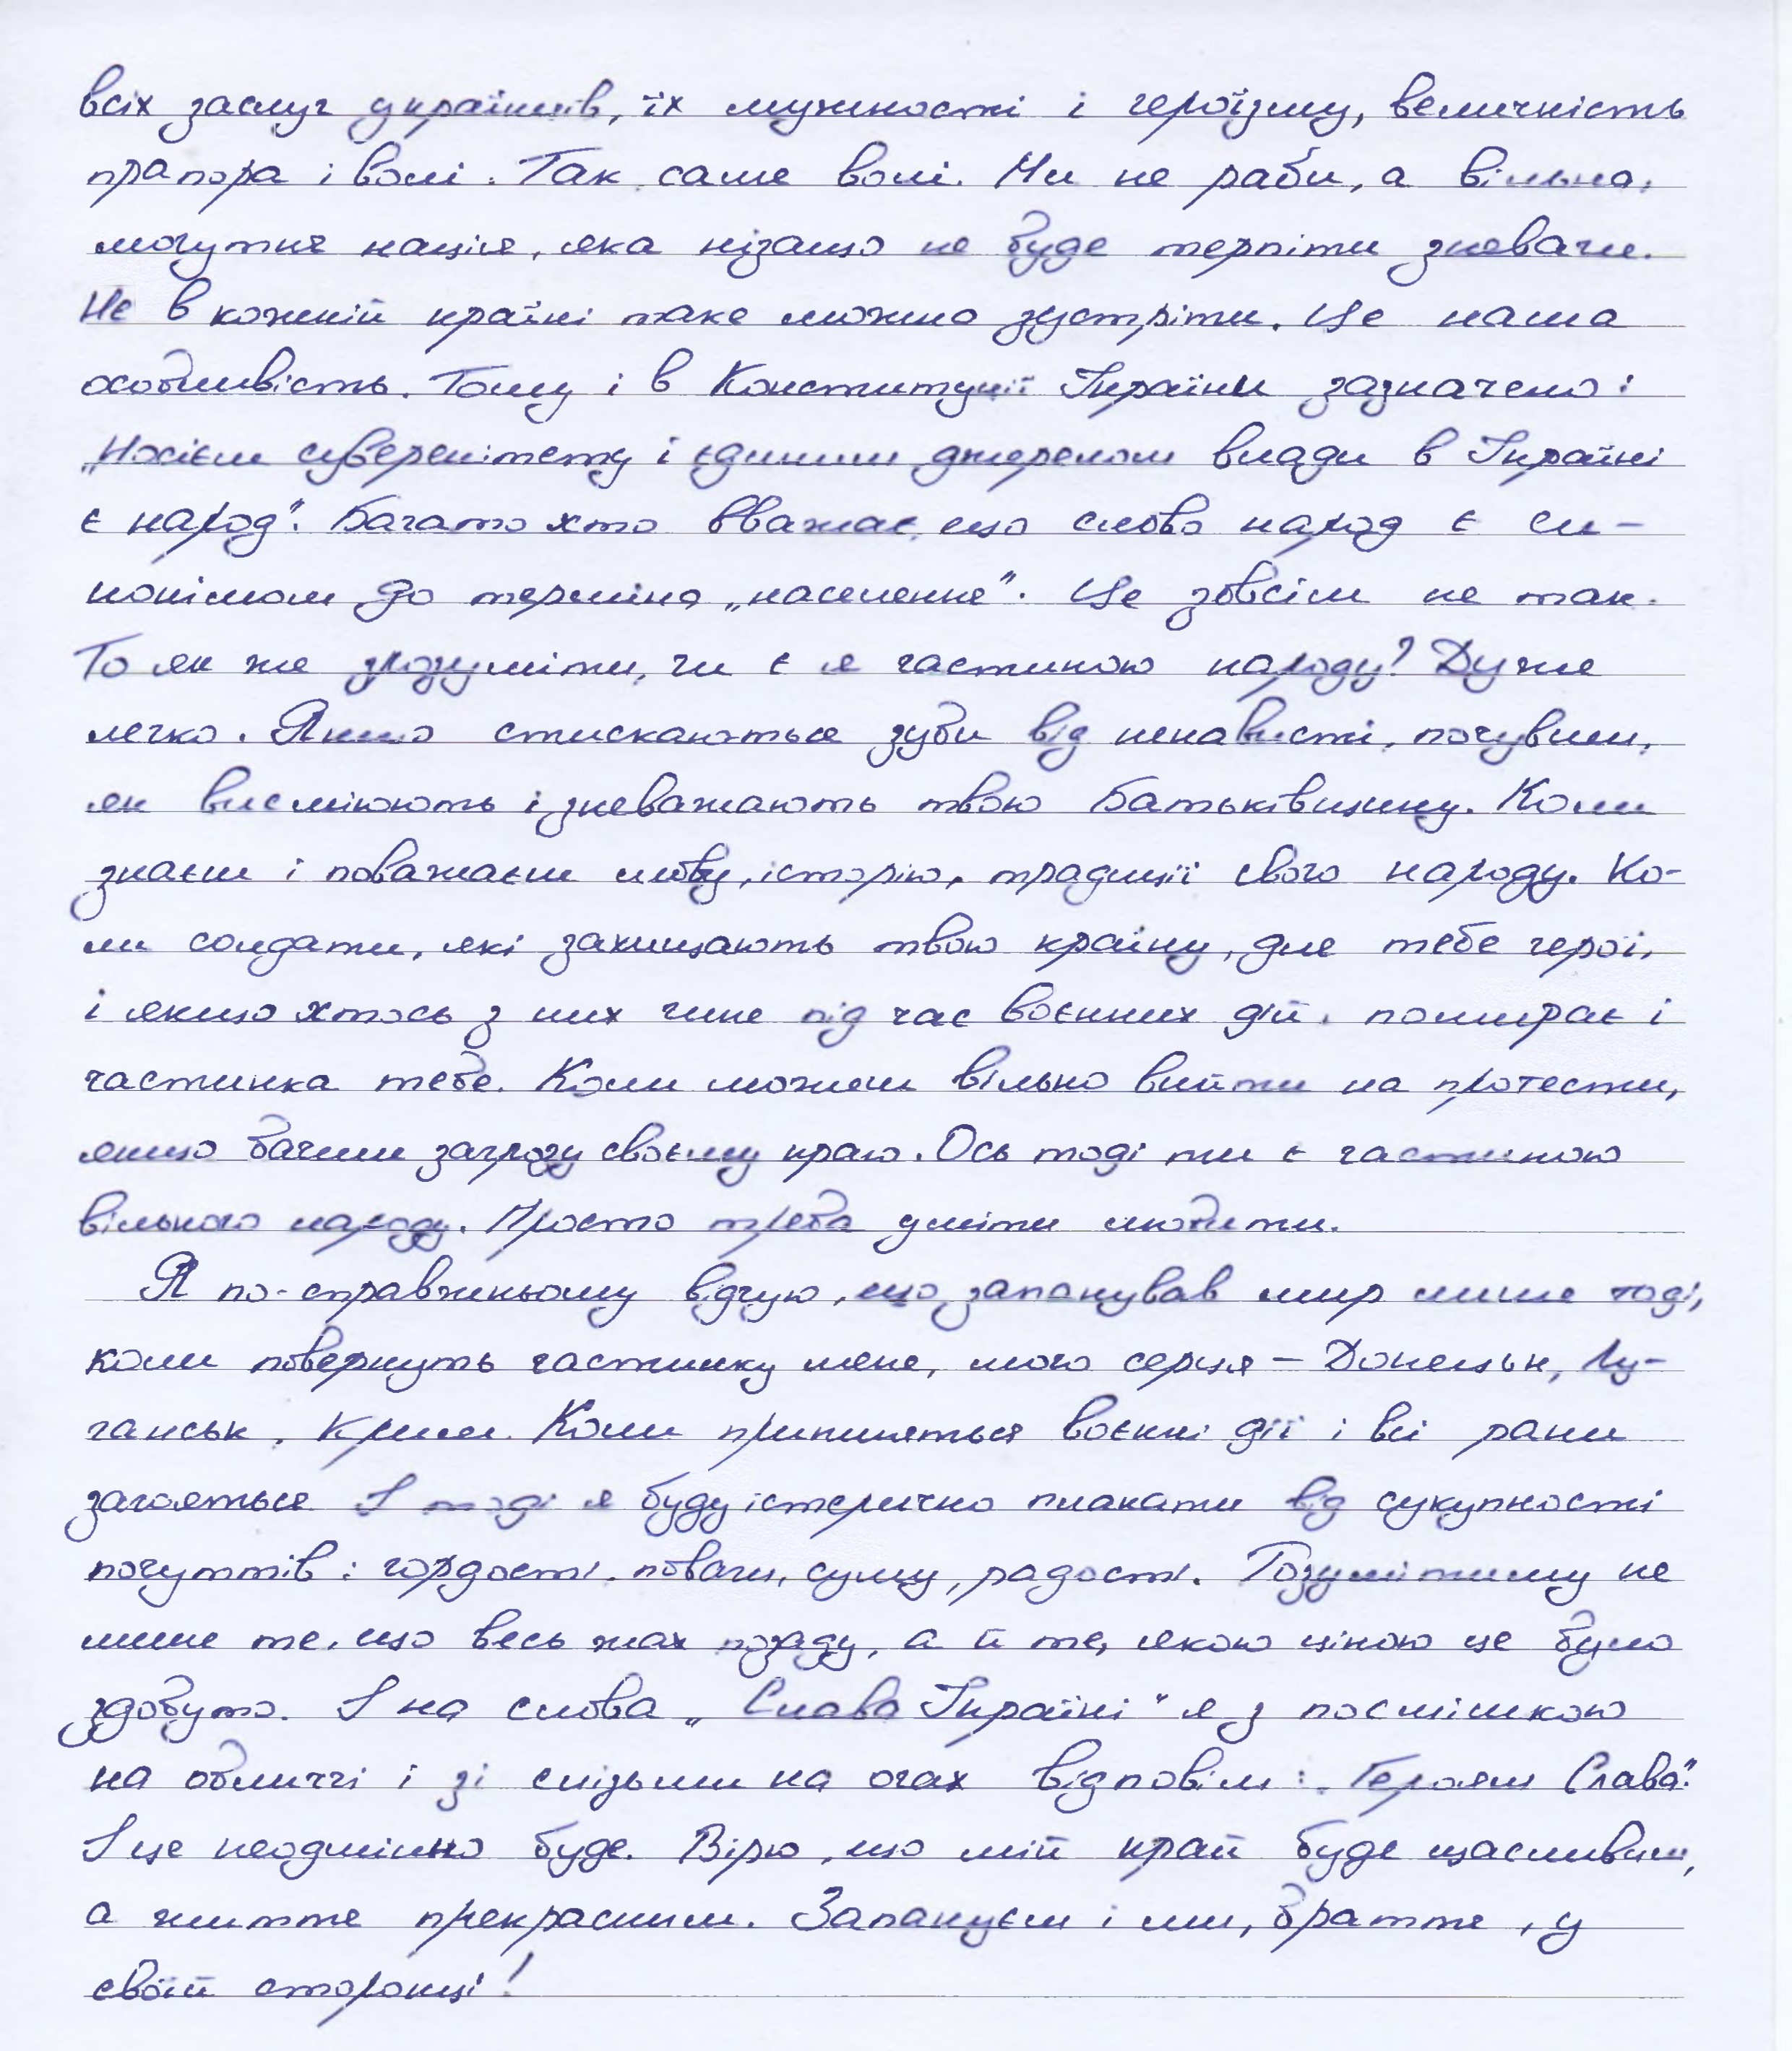 всіх заслуг українців, їх мужності і героїзму, величність
прапора і волі. Так, саме волі. Ми не раби, а вільна,
могутня нація, яка нізащо не буде терпіти зневаги.
Не в кожній країні таке можна зустріти. Це наша
особливість. Тому і в Конституції України зазначено:
„Носієм суверенітету і єдиним джерелом влади в Україні
є народ". Багато хто вважає, що слово народ є си-
нонімом до терміна „населення". Це зовсім не так.
То як же зрозуміти, чи є я частиною народу? Дуже
легко. Якщо стискаються зуби від ненависті, почувши,
як висміюють і зневажають твою Батьківщину. Коли
знаєш і поважаєш мову, історію, традиції свого народу. Ко-
ли солдати, які захищають твою країну, для тебе герої,
і якщо хтось з них гине під час воєнних дій, помирає і
частинка тебе. Коли можеш вільно вийти на протести,
якщо бачиш загрозу своєму краю. Ось тоді ти є частиною
вільного народу. Просто треба уміти любити.
Я по-справжньому відчую, що запанував мир лише тоді,
коли повернуть частинку мене, мого серця – Донецьк, Лу-
ганськ, Крим. Коли припиняться воєнні дії і всі рани
загояться. І тоді я буду істерично плакати від сукупності
почуттів: гордості, поваги, суму, радості. Розумітиму не
лише те, що весь жах позаду, а й те, якою ціною це було
здобуто. І на слова „Слава Україні" я з посмішкою
на обличчі і зі слізьми на очах відповім: „Героям Слава".
І це неодмінно буде. Вірю, що мій край буде щасливим,
а життя прекрасним. Запануєм і ми, браття, у
своїй сторонці!